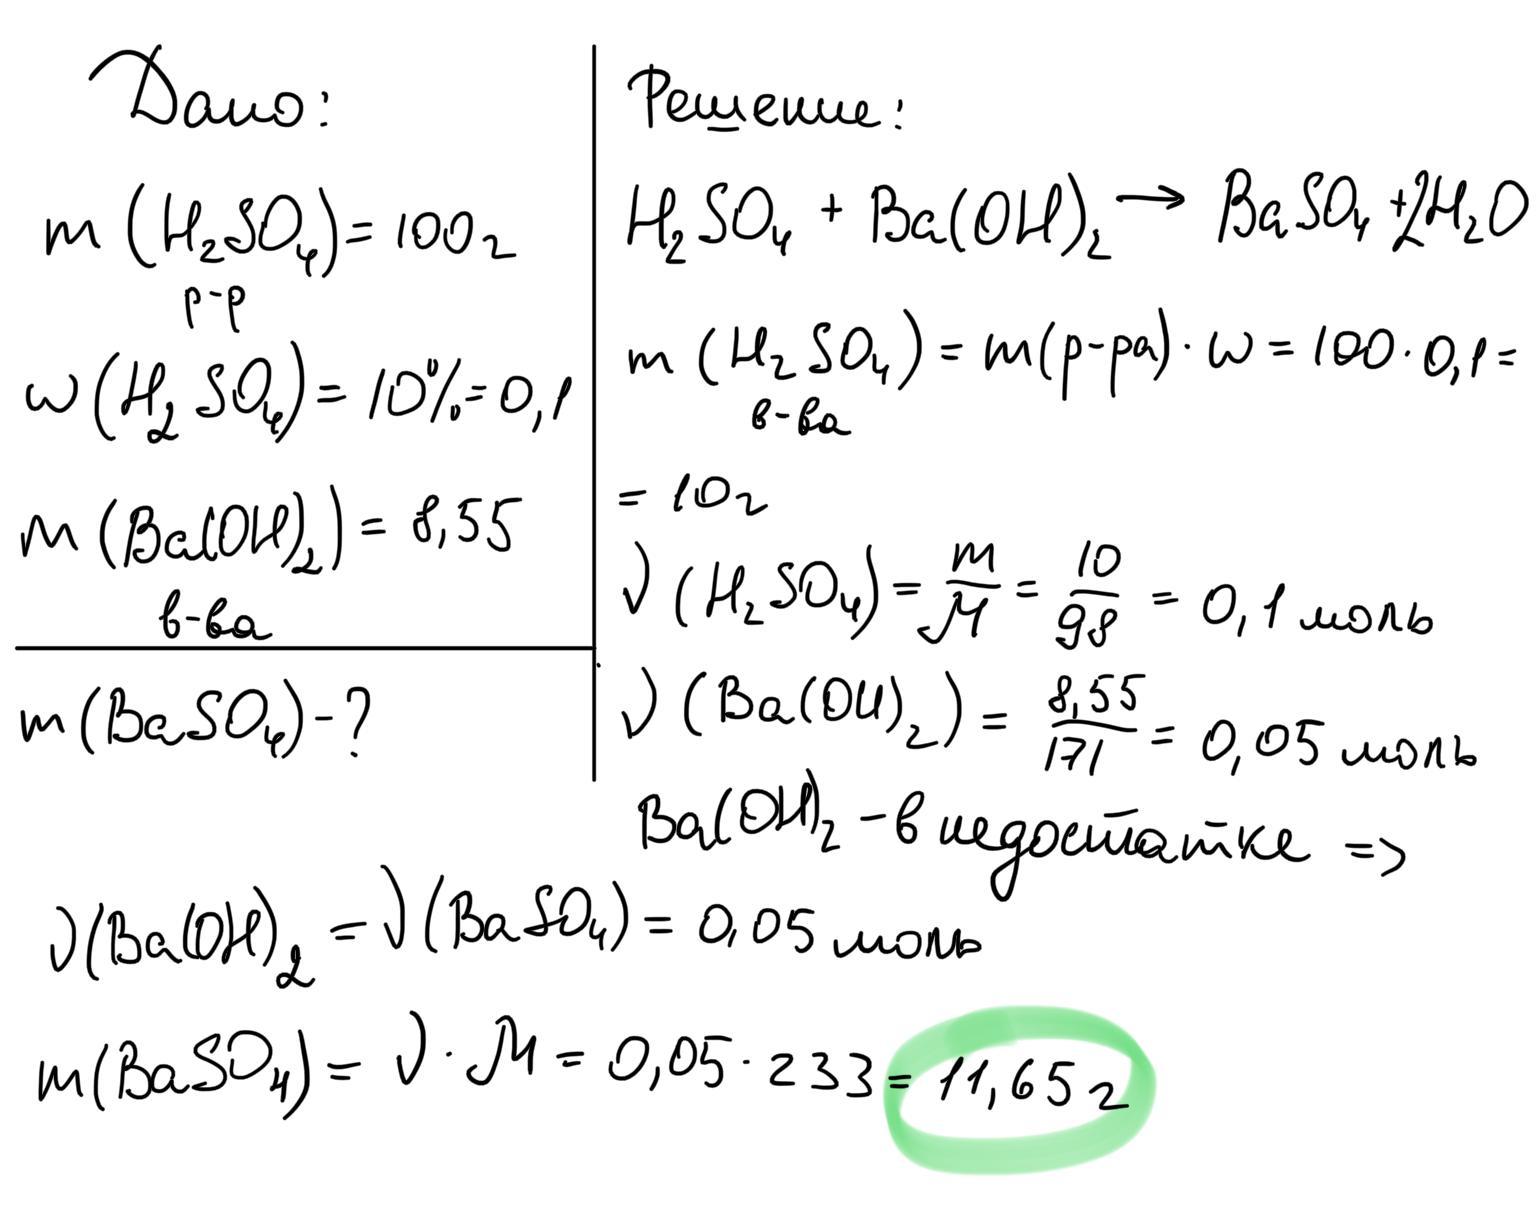 Дано:
m(H₂SO₄) = 100г
р-р
w(H₂SO₄) = 10% = 0,1
m(Ba(OH)₂) = 8,55
в-ва
m(BaSO₄) - ?
Решение:
H₂SO₄ + Ba(OH)₂ → BaSO₄ + 2H₂O
m(H₂SO₄) = m(р-ра) · w = 100 · 0,1 =
в-ва
= 10г
ν(H₂SO₄) = m/M = 10/98 = 0,1 моль
ν(Ba(OH)₂) = 8,55/171 = 0,05 моль
Ba(OH)₂ - в недостатке =>
ν(Ba(OH)₂ = ν(BaSO₄) = 0,05 моль
m(BaSO₄) = ν · M = 0,05 · 233 = 11,65 г